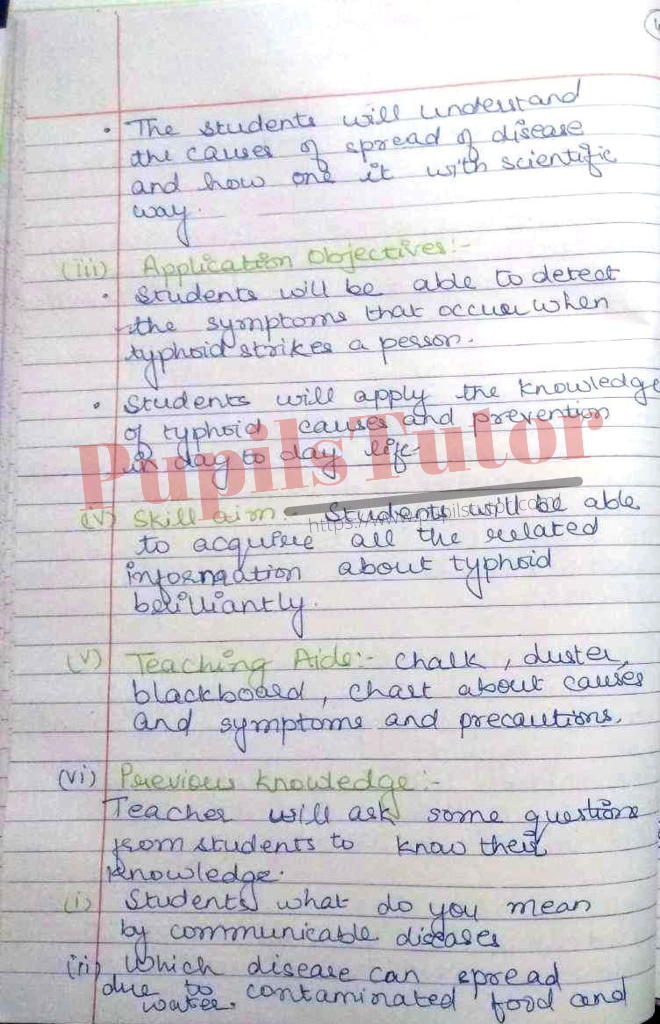 • The students will understand
the causes of spread of disease
and how one it with scientific
way.
(iii) Application Objectives:-
• Students will be able to detect
the symptoms that occur when
typhoid strikes a person.
• Students will apply the knowledge
of typhoid causes and prevention
in day to day life
PupilsTutor
(V) Skill aim:- Students will be able
to acquire all the related
information about typhoid
berilliantly.
(V) Teaching Aids:- chalk, duster,
blackboard, chart about causes
and symptoms and precautions.
(vi) Previous knowledge:-
Teacher will ask some questions
from students to know their
knowledge.
(i) Students what do you mean
by communicable diseases
(ii) Which disease can spread
due to contaminated food and
water.